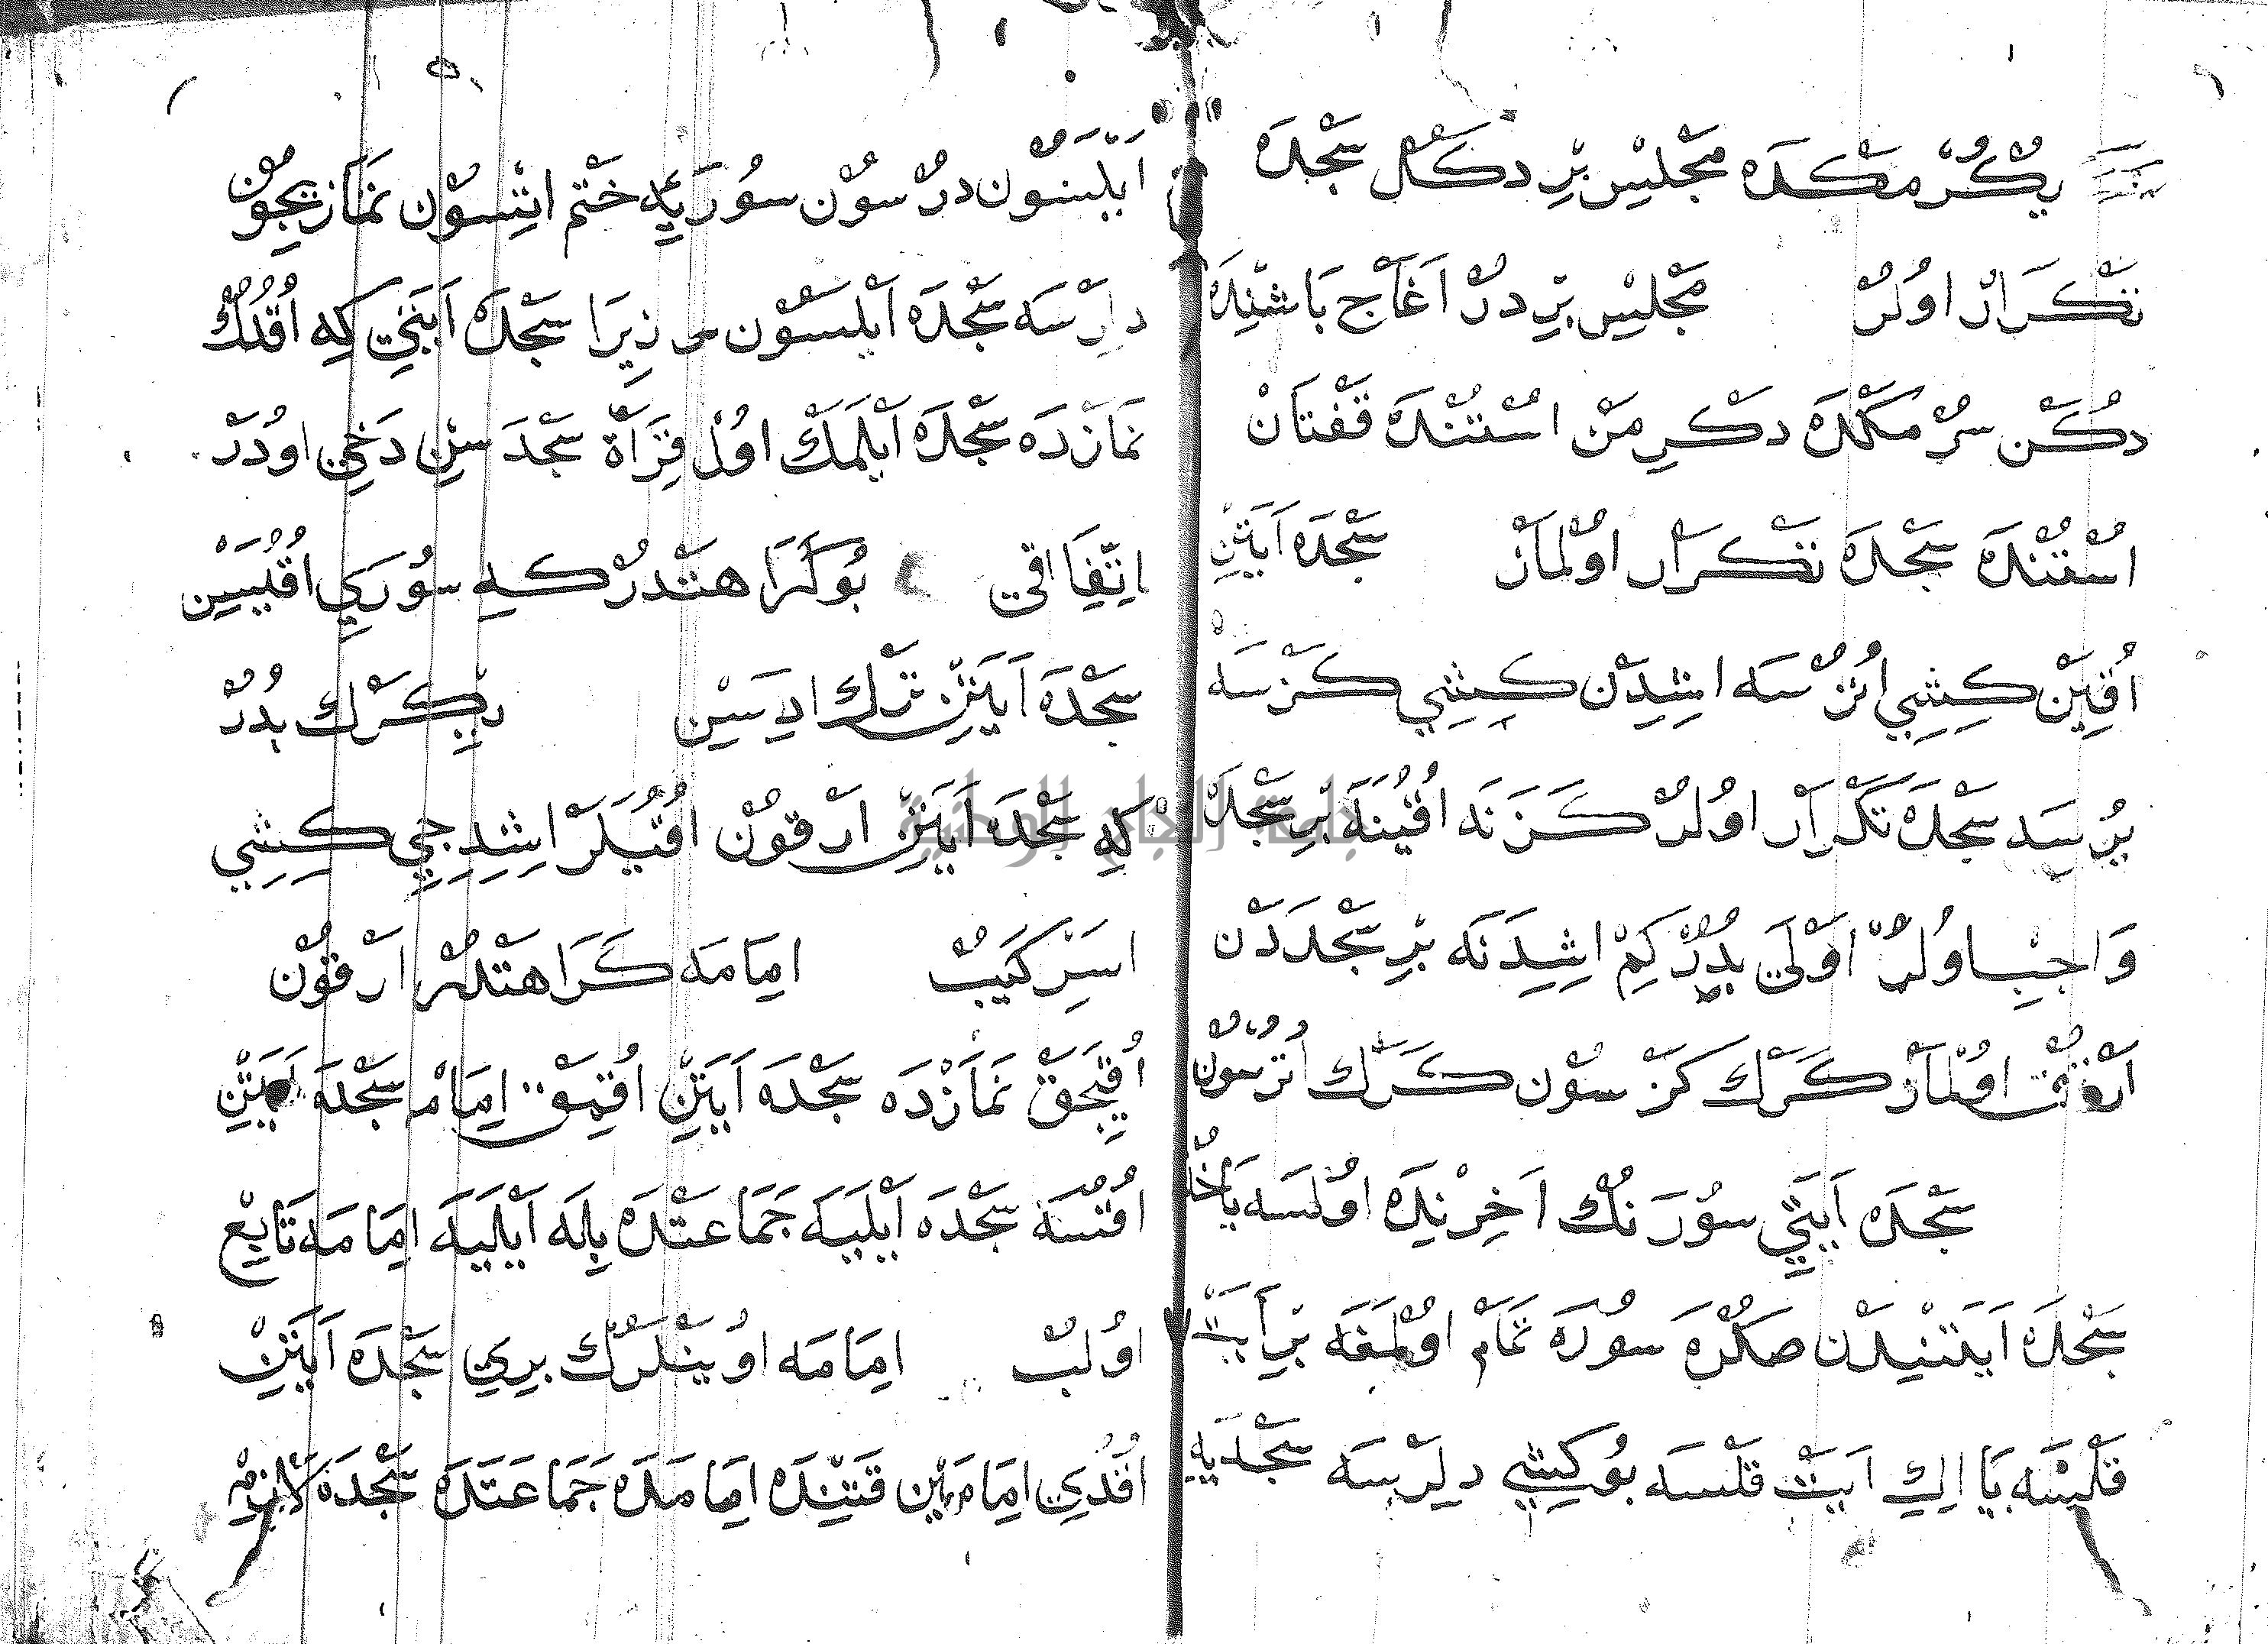 يُكُرْمَكْدَه مَجْلِيسْ بْرِ دكُلْ سَجْدَه
تَكْرَارْ اوُلُرْ مَجْلِيسْ بْرِ دُرْ اَغَاجْ بَاشِنْدَه
دكُنْ سُرْمَكْدَه دكِرْمَنْ اُسْتُنْدَه قَفْتَانْ
اُسْتُنْدَه سَجْدَه تَكْرَارْ اوُلْمَازْ سَجْدَه اَيَتِنْ
اُقِيَنْ كِشِي اُتُرْسَه اِشِدَنْ كِشِي كَزْسَه
يُرُسَه سَجْدَه تَكْرَارْ اوُلُرْ كَزَنَه اُقُيُنَه بْرِ سَجْدَه
وَاجِبْ اوُلُرْ اَوْلَى بُدُرْ كِمْ اِشِدَنَه بْرِ سَجْدَدَنْ
اَرْتُقْ اوُلْمَازْ كَرَكْ كَزْسُونْ كَرَكْ اُتُرْسُونْ
سَجْدَه اَيَتِي سُورَنُكْ اَخِرِنْدَه اوُلْسَه يَاخُدْ
سَجْدَه اَيَتِنْدَنْ صَكْرَه سُورَه تَمَامْ اوُلْمَغَه بْرِ اَيَتْ
قَلْسَه يَا اِكِ اَيَتْ قَلْسَه بُو كِشِي دِلِرْسَه سَجْدَيِه
اَيْلَسُونْ دُرْسُونْ سُورَيِه خَتْمْ اِتْسُونْ نَمَازِيچُونْ
دِلَرْسَه سَجْدَه اَيْلَسُونْ زِيرَا سَجْدَه اَيَتِي كِه اُقُدُكْ
نَمَازْدَه سَجْدَه اَيْلَمَكْ اوُلْ قِرَأَةْ سَجْدَسِنْ دَخِي اوُدَرْ
اِتِّفَاقِي بُو كَرَاهَتْدُرْ كِه سُورَيِ اُقُيَسِنْ
سَجْدَه اَيَتِنْ تَرْكْ اِدَسِنْ دِيكَرَكْ بُدُرْ
كِه سَجْدَه اَيَتِنْ اَرْقُونْ اُقُيَلَرْ اِشِدِجِي كِشِي
اَسِرْكَيُبْ اِمَامَه كَرَاهَتْدُرْ اَرْقُونْ
اُقِيَجَقْ نَمَازْدَه سَجْدَه اَيَتِنْ اُقِمَقْ اِمَامْ سَجْدَه اَيَتِنْ
اُقُسَه سَجْدَه اَيْلَيَه جَمَاعَتْدَه بِلَه اَيْلَيَه اِمَامَه تَابِعْ
اوُلُبْ اِمَامَه اوُيَنْلَرُكْ بِرِي سَجْدَه اَيَتِنْ
اُقُدِي اِمَامَيْنْ قَتِنْدَه اِمَامَدَه جَمَاعَتَدَه سَجْدَه لَازِمْ